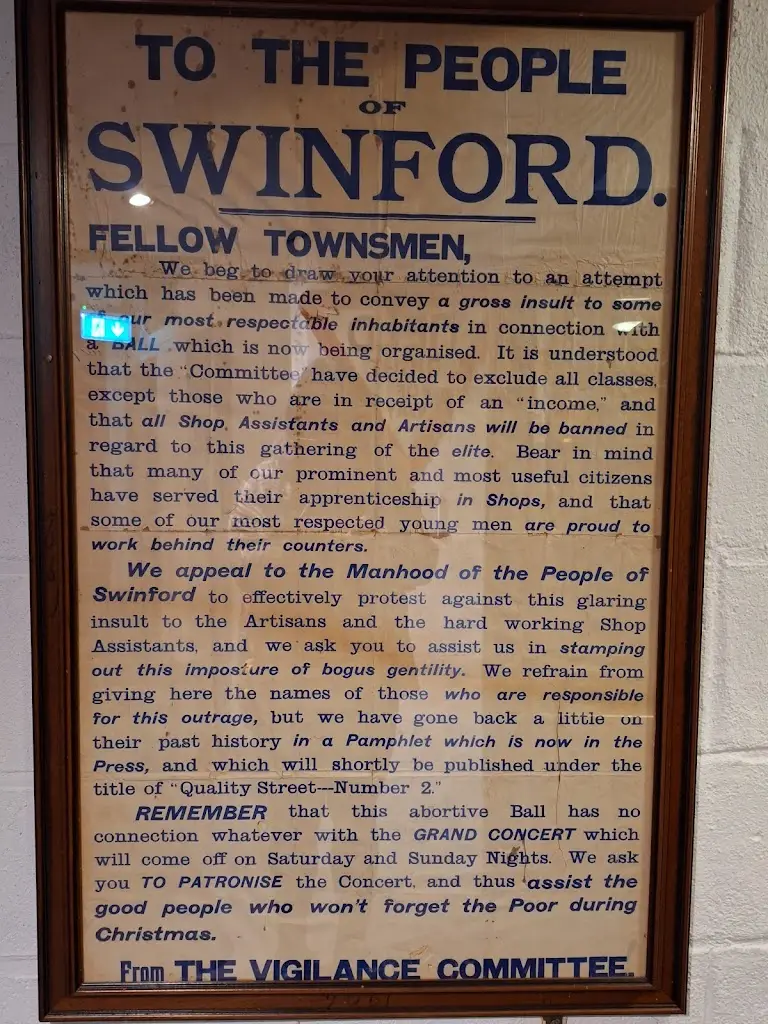 TO THE PEOPLE
OF
SWINFORD.
FELLOW TOWNSMEN,
We beg to draw your attention to an attempt
which has been made to convey a gross insult to some
of our most respectable inhabitants in connection with
a BALL which is now being organised. It is understood
that the "Committee" have decided to exclude all classes,
except those who are in receipt of an "income," and
that all Shop Assistants and Artisans will be banned in
regard to this gathering of the elite. Bear in mind
that many of our prominent and most useful citizens
have served their apprenticeship in Shops, and that
some of our most respected young men are proud to
work behind their counters.
We appeal to the Manhood of the People of
Swinford to effectively protest against this glaring
insult to the Artisans and the hard working Shop
Assistants, and we ask you to assist us in stamping
out this imposture of bogus gentility. We refrain from
giving here the names of those who are responsible
for this outrage, but we have gone back a little on
their past history in a Pamphlet which is now in the
Press, and which will shortly be published under the
title of "Quality Street---Number 2."
REMEMBER that this abortive Ball has no
connection whatever with the GRAND CONCERT which
will come off on Saturday and Sunday Nights. We ask
you TO PATRONISE the Concert, and thus assist the
good people who won't forget the Poor during
Christmas.
From THE VIGILANCE COMMITTEE.